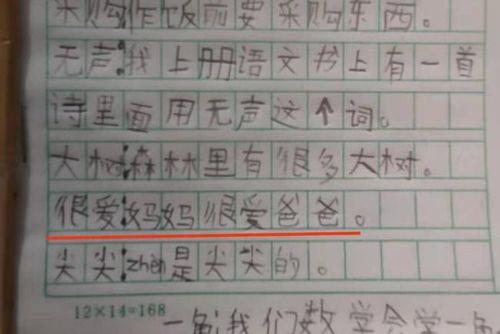 采购作饭前要采购东西。
无声:我上册语文书上有一首
诗里面用无声这个词。
大树:森林里有很多大树。
很爱:妈妈很爱爸爸。
尖尖:zhēn是尖尖的。
12×14=168
一色:我们数学会学一